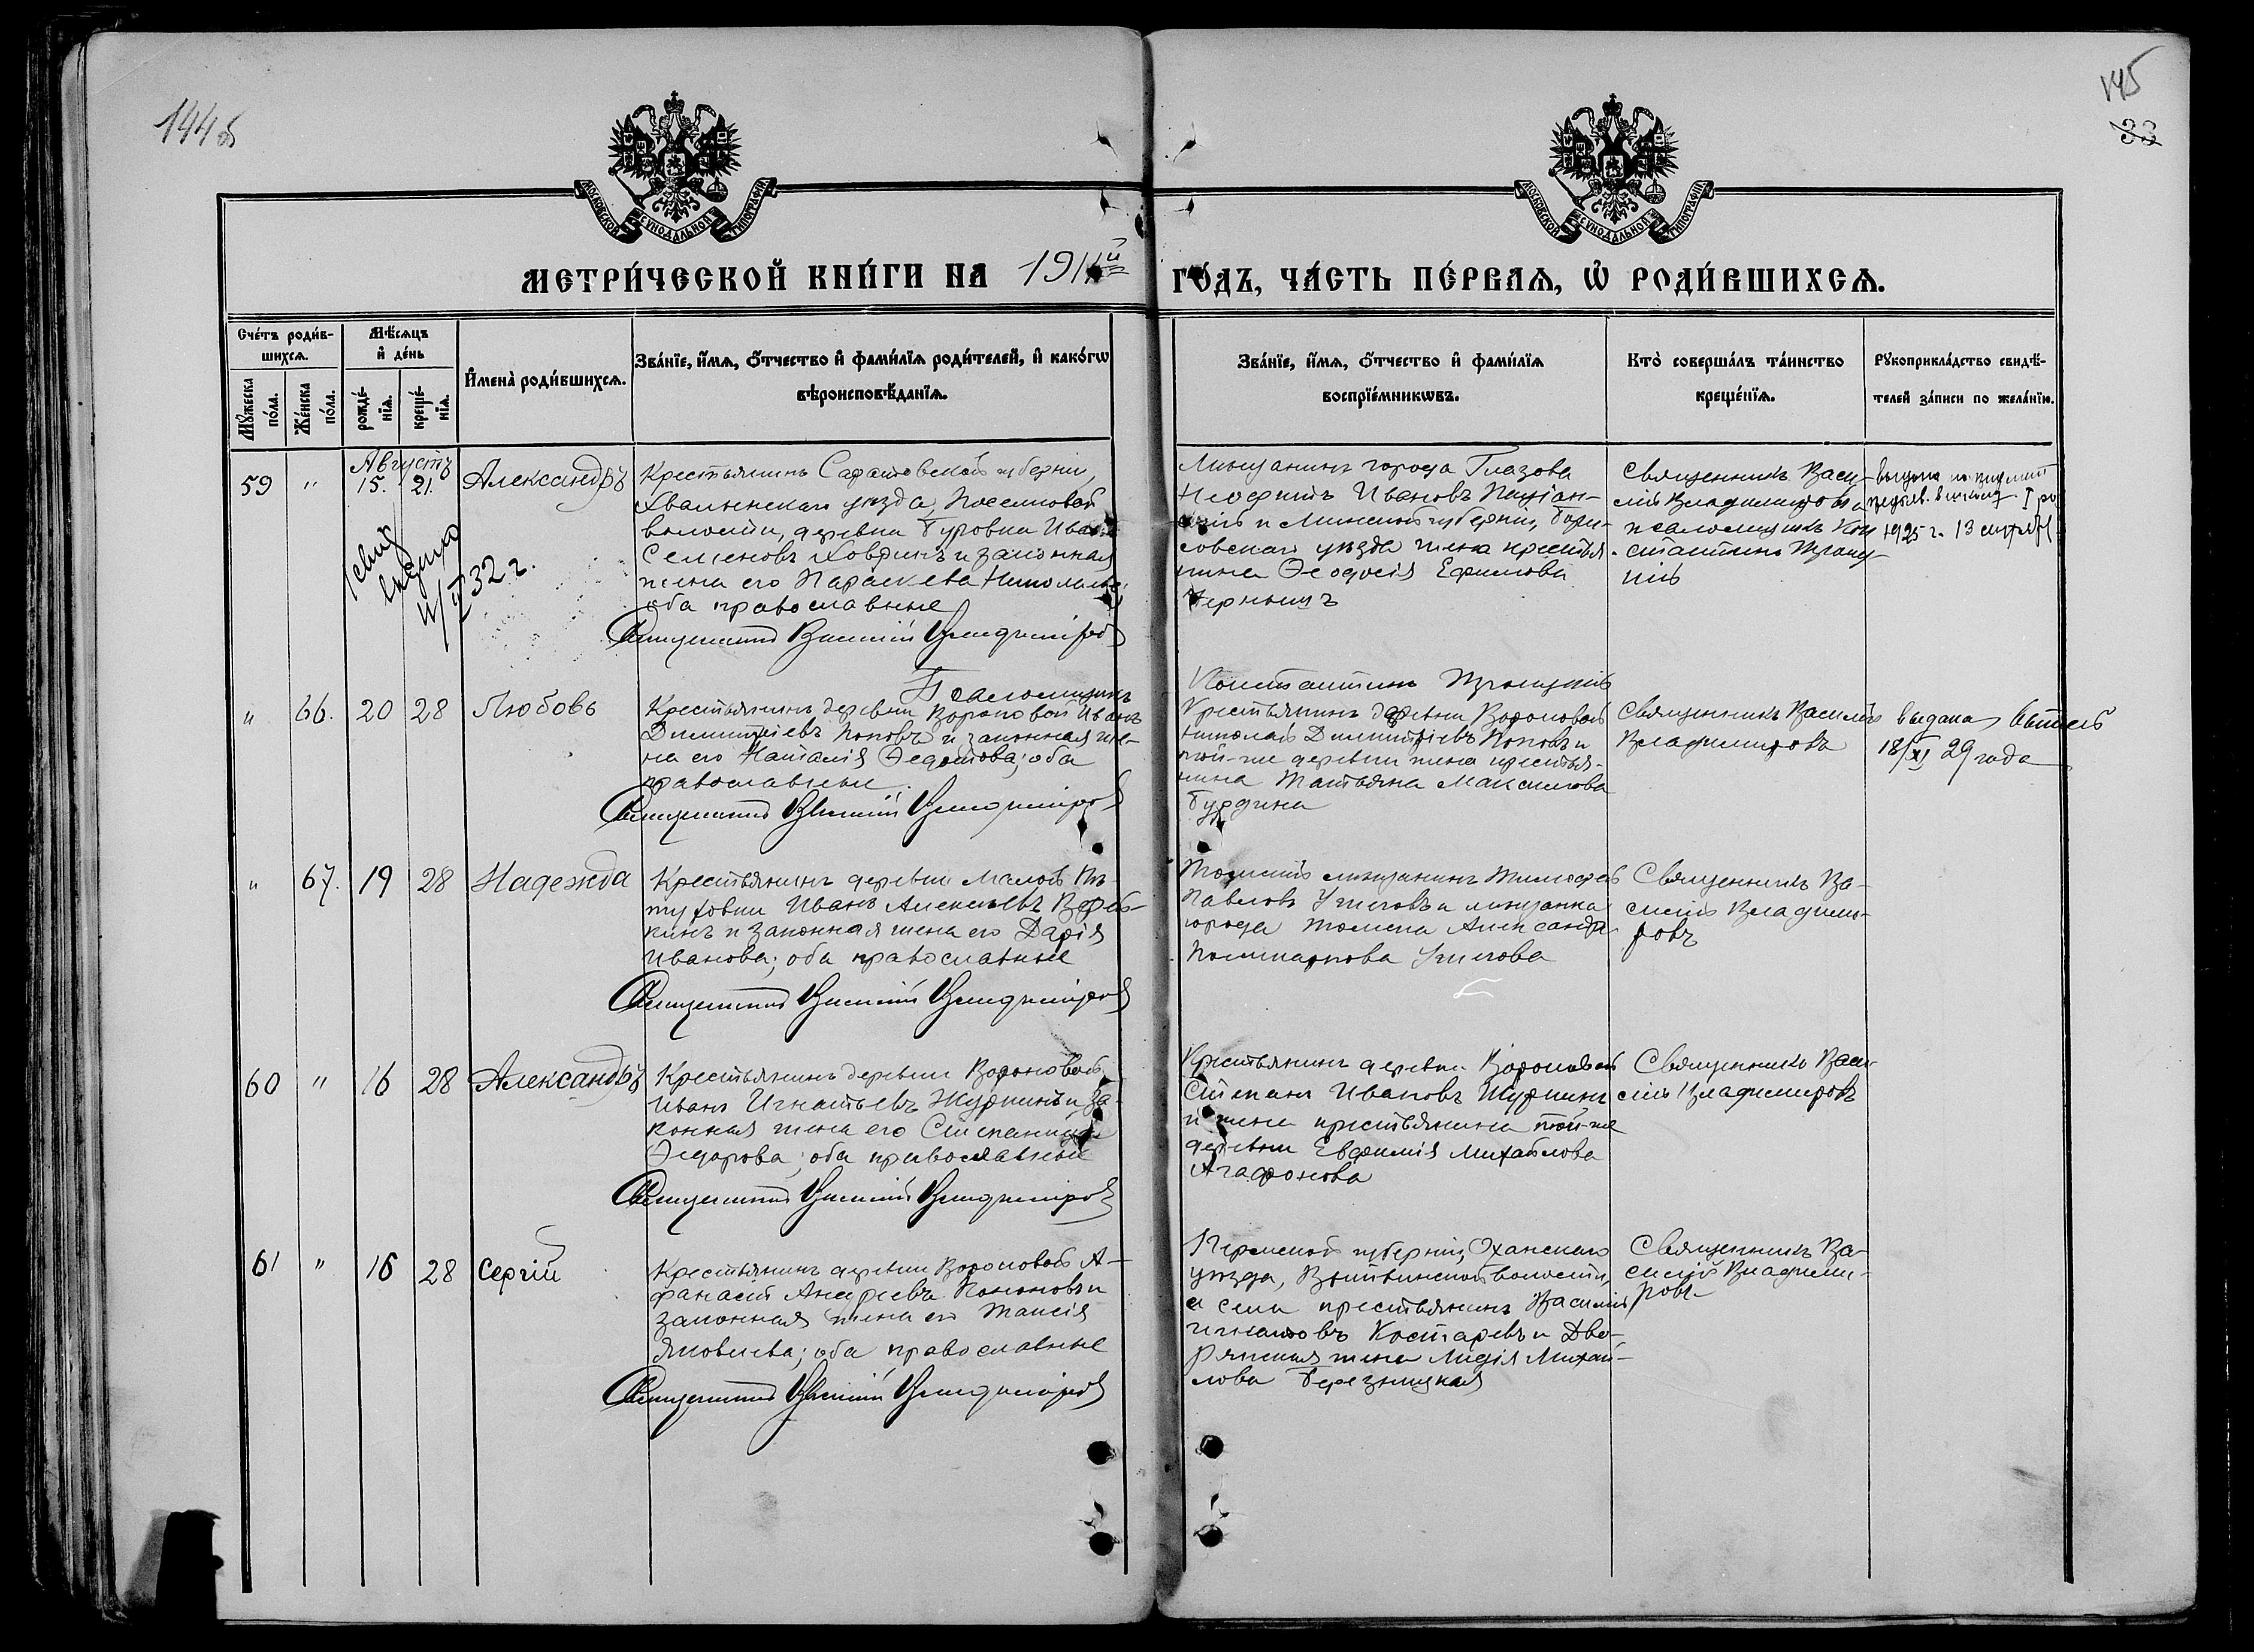 144 об
145
33
МОСКОВСКОЙ СѴНОДАЛЬНОЙ ТИПОГРАФІИ
МОСКОВСКОЙ СѴНОДАЛЬНОЙ ТИПОГРАФІИ
МЕТРИ́ЧЕСКОЙ КНИ́ГИ НА 1911й
ГО́ДЪ, ЧА́СТЬ ПЕ́РВАѦ, Ѡ҆ РОДИ́ВШИХСѦ.
Сче́тъ роди́в-
шихсѧ.
Мꙋ́жеска
по́ла.
Же́нска
по́ла.
Мѣ́сѧцъ
и҆ де́нь
рожде́-
нїѧ.
креще́-
нїѧ.
И҆мена̀ роди́вшихсѧ.
Зва́нїе, и҆́мѧ, ѻ҆́тчество и҆ фами́лїѧ роди́телей, и҆ како́гѡ
вѣроисповѣ́данїѧ.
Зва́нїе, и҆́мѧ, ѻ҆́тчество и҆ фами́лїѧ
воспрїе́мникѡвъ.
Кто̀ соверша́лъ та́инство
креще́нїѧ.
Рꙋкоприкла́дство свидѣ́-
телей за́писи по жела́нїю.
Августъ
59 " 15. 21. Александръ
Крестьянинъ Саратовской губерніи,
Хвалынскаго уѣзда, Поселковой
волости, деревни Буровки Иванъ
Семеновъ Ховринъ и законная
жена его Параскева Николаева
оба православные
Священникъ Василій Владиміровъ
Псаломщикъ
Константинъ Троицкій
Мѣщанинъ города Глазова
Иванова
и Минской губерніи, Бори-
совскаго уѣзда жена крестья-
нина Ѳеодосія Ефимова
Священникъ Васи-
лій Владиміровъ и
псаломщикъ Кон-
стантинъ Троиц-
кій
1925 г. 13
II 32 г.
" 66. 20 28 Любовь
Крестьянинъ деревни Вороновой Иванъ
Димитріевъ Поповъ и законная же-
на его Наталія Ѳедотова; оба
православные.
Священникъ Василій Владиміровъ
Крестьянинъ деревни Вороновой
Николай Димитріевъ Поповъ и
той-же деревни жена крестья-
нина Татьяна Максимова
Бурдина
Священникъ Василій
Владиміровъ
выдана выпись
18/XI 29 года
" 67. 19 28 Надежда
Крестьянинъ деревни Малой
Иванъ Алексѣевъ
и законная жена его Дарія
Иванова; оба православные
Священникъ Василій Владиміровъ
Томскій мѣщанинъ Тимофей
Павловъ и мѣщанка
города Томска Александра
Поликарпова
Священникъ Ва-
силій Владими-
ровъ
60 " 16 28 Александръ
Крестьянинъ деревни Вороновой
Иванъ Игнатьевъ Журкинъ и за-
конная жена его Степанида
Ѳедорова; оба православные
Священникъ Василій Владиміровъ
Крестьянинъ деревни Вороновой
Степанъ Ивановъ Журкинъ
и жена крестьянина той-же
деревни Евфимія Михайлова
Агафонова
Священникъ Васи-
лій Владиміровъ
61 " 16 28 Сергій
Крестьянинъ деревни Вороновой А-
фанасій Андреевъ Кононовъ и
законная жена его Таисія
Яковлева; оба православные
Священникъ Василій Владиміровъ
Пермской губерніи, Оханскаго
уѣзда, волости
и села крестьянинъ Василій
Игнатовъ Костаревъ и Дво-
рянская жена Лидія Михай-
лова Березницкая
Священникъ Ва-
силій Владими-
ровъ